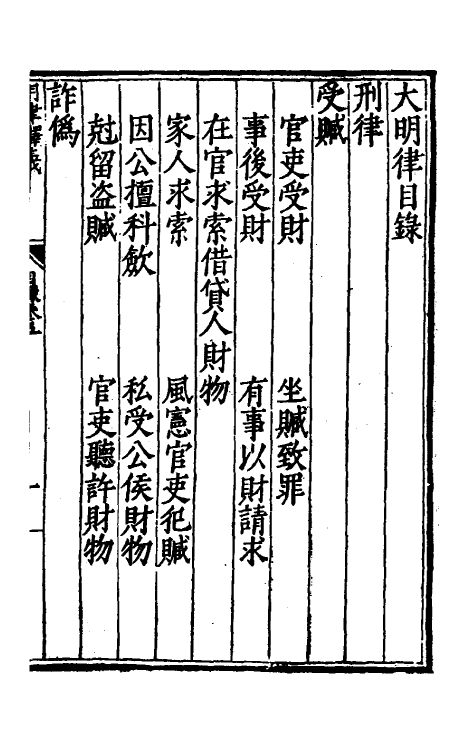 大明律目錄
刑律
受贓
官吏受財 坐贓致罪
事後受財 有事以財請求
在官求索借貸人財物
家人求索 風憲官吏犯贓
因公擅科歛 私受公侯財物
尅留盜贓 官吏聽許財物
詐僞